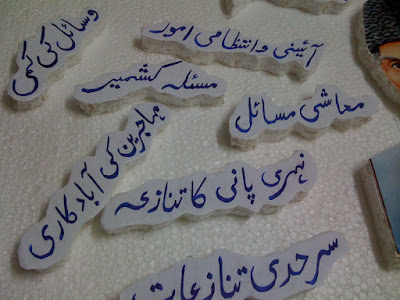 وسائل کی کمی
آئینی وانتظامی امور
مسئلہ کشمیر
معاشی مسائل
مہاجرین کی آبادکاری
نہری پانی کا تنازعہ
سرحدی تنازعات